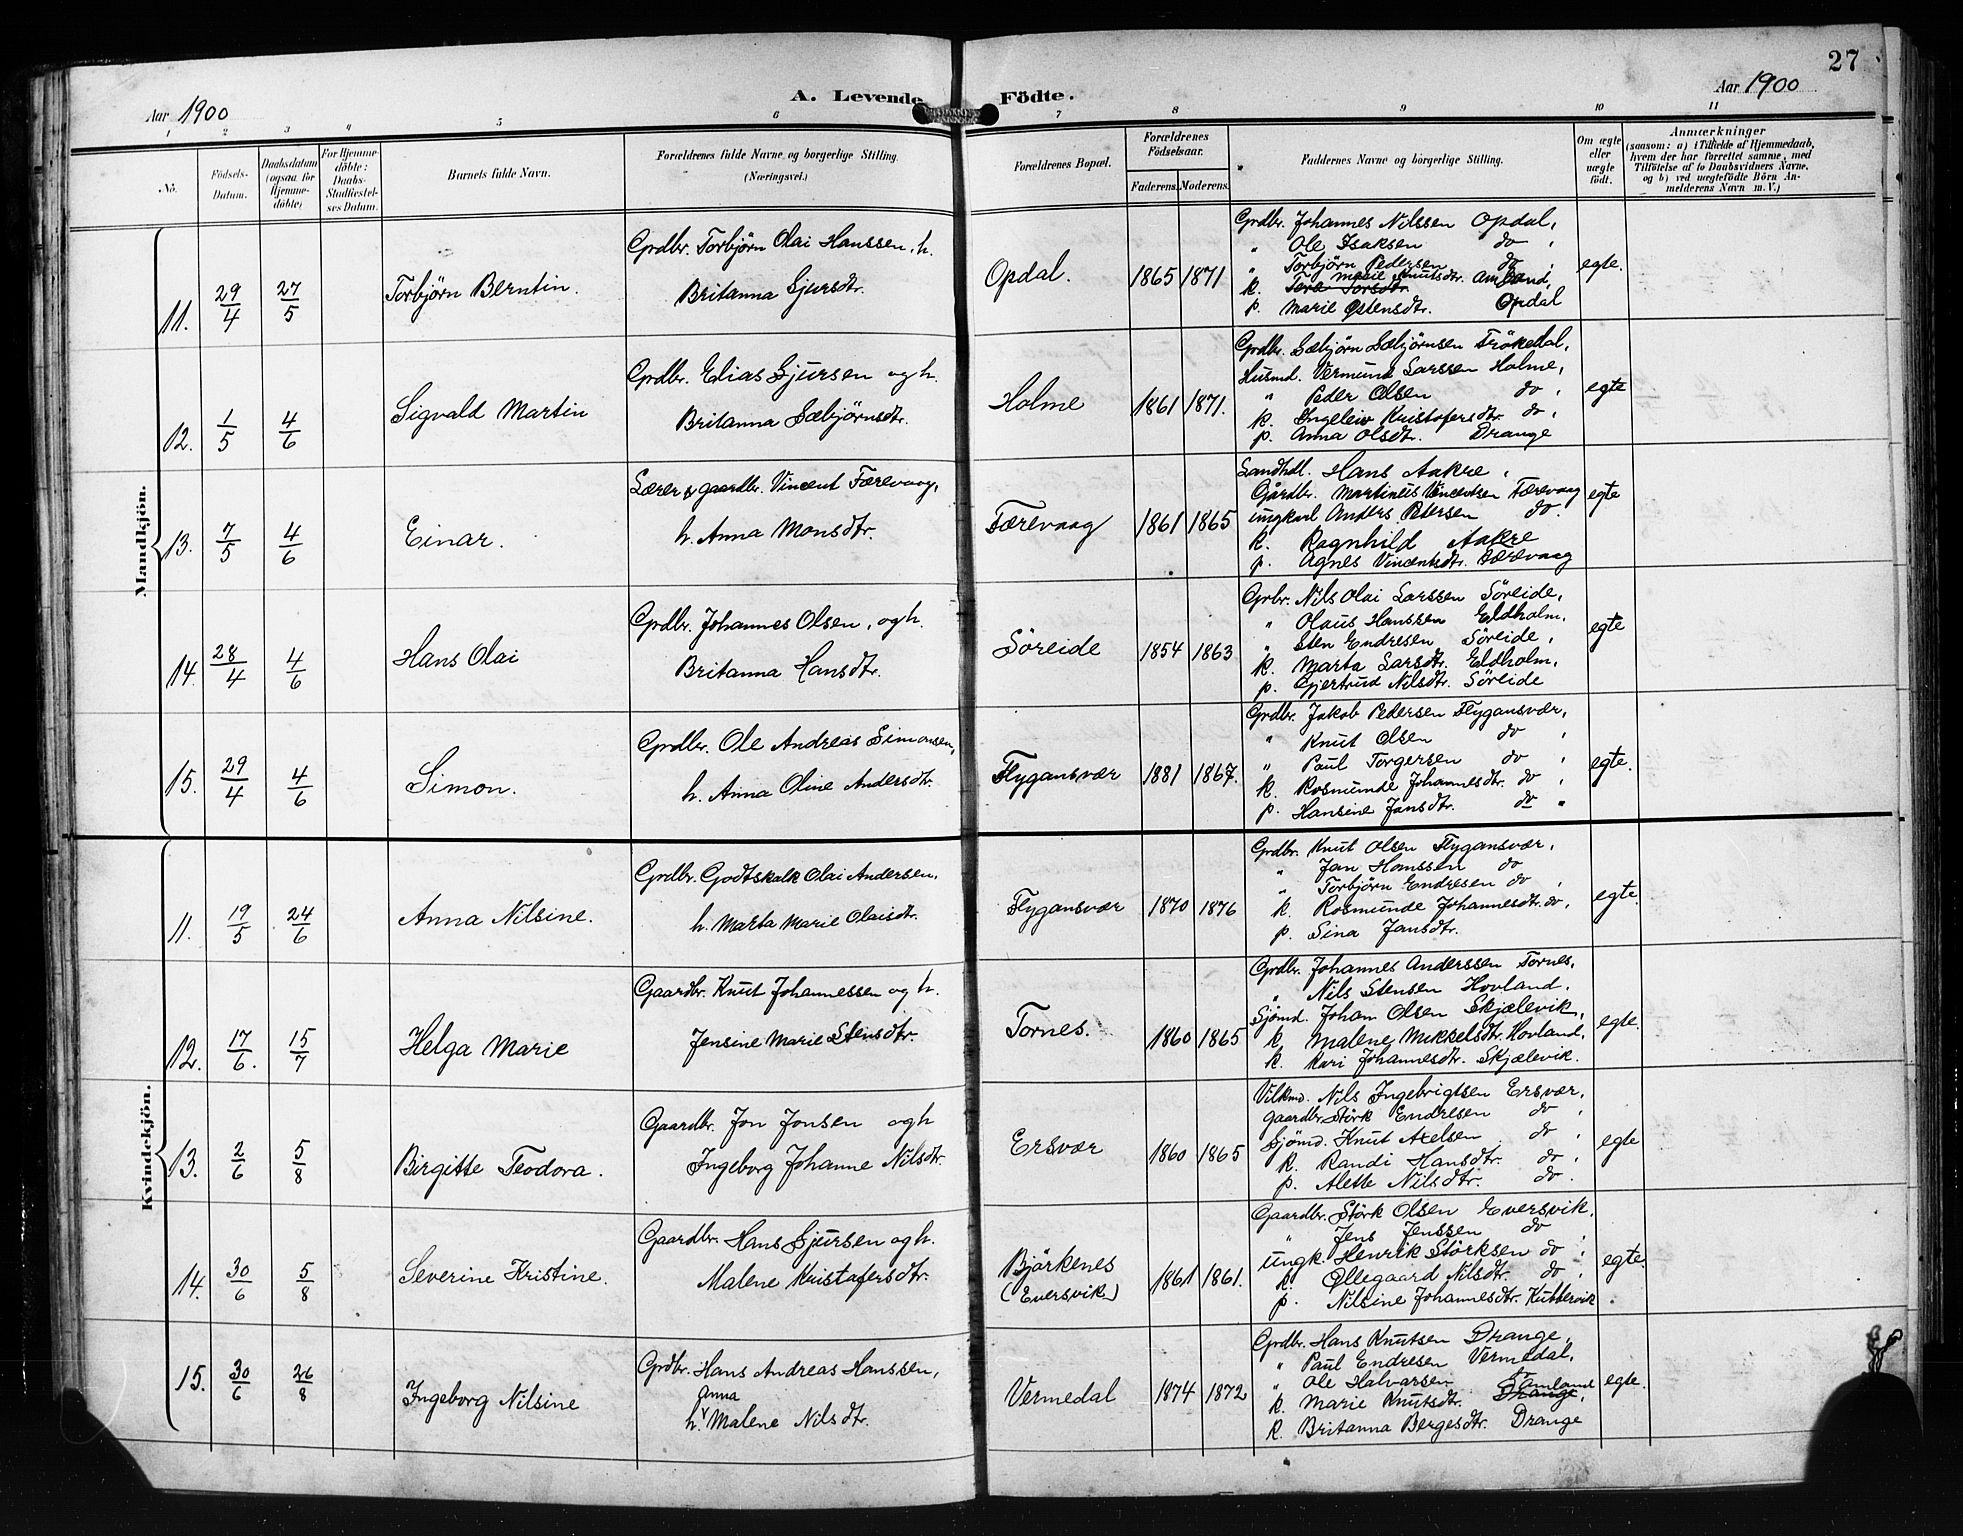 27
Aar 1900
A. Levende Födte.
Aar 1900
1 2 3 4 5 6 7 8 9 10 11
No.
Födsels-
Datum.
Daabsdatum
(ogsaa for
Hjemme-
döbte)
For Hjemme-
döbte:
Daabs-
Stadfæstel-
ses Datum.
Barnets fulde Navn.
Forældrenes fulde Navne og borgerlige Stilling.
(Næringsvei.)
Forældrenes Bopæl.
Forældrenes
Födselsaar.
Faderens. Moderens.
Faddernes Navne og borgerlige Stilling.
Om ægte
eller
uægte
født.
Anmærkninger
(saasom: a) i Tilfælde af Hjemmedaab,
hvem der har forrettet samme, med
Tilföielse af to Daabsvidners Navne,
og b) ved uægtefödte Börn An-
melderens Navn m. V.)
Mandkjön.
11. 29/4 27/5 Torbjørn Berntin.
Grdbr. Torbjørn Olai Hanssen, h.
Britanna Sjursdtr.
Opdal. 1865 1871
Grdbr. Johannes Nilssen Opdal,
" Ole Isaksen do,
" Torbjørn Pedersen do,
k. Tere Torsdtr. Marie Knutsdtr. Amland,
p. Marie Østensdtr. Opdal
egte.
12. 1/5 4/6 Sigvald Martin
Grdbr. Elias Sjursen og h.
Britanna Sæbjørnsdtr.
Holme 1861 1871.
Grdbr. Sæbjørn Sæbjørnsen Frökedal,
Husmd. Vermund Larssen Holme,
" Peder Olsen do,
k. Ingeleiv Kristofersdtr. do,
p. Anna Olsdtr. Drange
egte
13. 7/5 4/6 Einar.
Lærer & gaardbr. Vincent Færevaag,
h. Anna Monsdtr.
Færevaag 1861 1865
Landhdl. Hans Aakre,
Gårdbr. Martinus Vincentsen Færevaag
ungkarl Anders Petersen do.
k. Ragnhild Aakre
p. Agnes Vincentsdtr. Færevaag
egte
14. 28/4 4/6 Hans Olai
Grdbr. Johannes Olsen, og h.
Britanna Hansdtr.
Söreide 1854 1863
Grbr. Nils Olai Larssen Söreide,
" Olaus Hanssen Eldholm,
" Sten Endresen Söreide,
k. Marta Larsdtr. Eldholm,
p. Gjertrud Nilsdtr. Söreide
egte
15. 29/4 4/6 Simon.
Grdbr. Ole Andreas Simonsen,
h. Anna Oline Andersdtr.
Flygansvær 1881 1867.
Grdbr. Jakob Pedersen Flygansvær,
" Knut Olsen do,
" Paul Torgersen do,
k. Rosmunde Johannesdtr. do,
p. Hansine Jansdtr. do "
egte.
Kvindekjön.
11. 19/5 24/6 Anna Nilsine.
Grdbr. Godtskalk Olai Andersen,
h. Marta Marie Olaisdtr.
Flygansvær 1870 1876
Grdbr. Knut Olsen Flygansvær,
" Jan Hanssen do
" Torbjörn Endresen do,
k. Rosmunde Johannesdtr. do,
p. Sina Jansdtr.
egte.
12. 17/6. 15/7 Helga Marie
Gaardbr. Knut Johannessen og h.
Jensine Marie Stensdtr.
Tornes. 1860 1865
Grdbr. Johannes Anderssen Tornes,
" Nils Stensen Hovland,
Sjömd. Johan Olsen Skjælevik,
k. Malene Mikkelsdtr. Hovland,
k. Kari Johannesdtr. Skjælevik.
egte.
13. 2/6 5/8 Birgitte Teodora.
Gaardbr. Jon Jonsen og h
Ingeborg Johanne Nilsdtr.
Ersvær 1860 1865
Vilkmd. Nils Ingebrigtsen Ersvær,
Gaardbr. Störk Endresen do,
Sjömd. Knut Axelsen do,
k. Randi Hansdtr. do,
p. Alette Nilsdtr. do.
egte
14. 30/6 5/8 Severine Kristine.
Gaardbr. Hans Sjursen og h.
Malene Kristafersdtr.
Björkenes
(Eversvik) 1861 1861.
Gaardbr. Störk Olsen Eversvik,
" Jens Jenssen do,
ungk. Henrik Störksen do,
k. Øllegaard Nilsdtr. do,
p. Nilsine Johannesdtr. Kuttervik.
egte.
15. 30/6 26/8 Ingeborg Nilsine
Grdbr. Hans Andreas Hanssen,
anna
h. Malene Nilsdtr.
Vermedal 1874 1872
Grdbr. Hans Knutsen Drange,
" Paul Endresen Vermedal,
" Ole Halvarsen Tamland
k. Marie Knutsdtr. Drange,
k. Britanna Bergesdtr. Drange
egte.